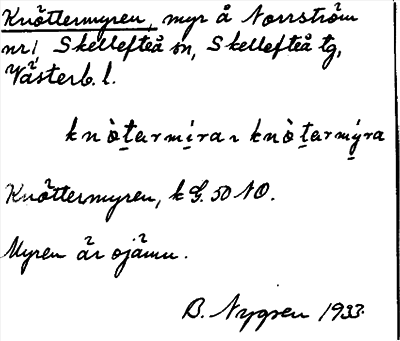 Knöttermyren, myr å Norrström
nr 1 Skellefteå sn, Skellefteå tg,
Västerb. l.
knò̱ṯarmi̱ra ~ knò̱ṯarmý̱ra
Knöttermyren, k G. 50 NO.
Myren är ojämn.
B. Nygren 1933.